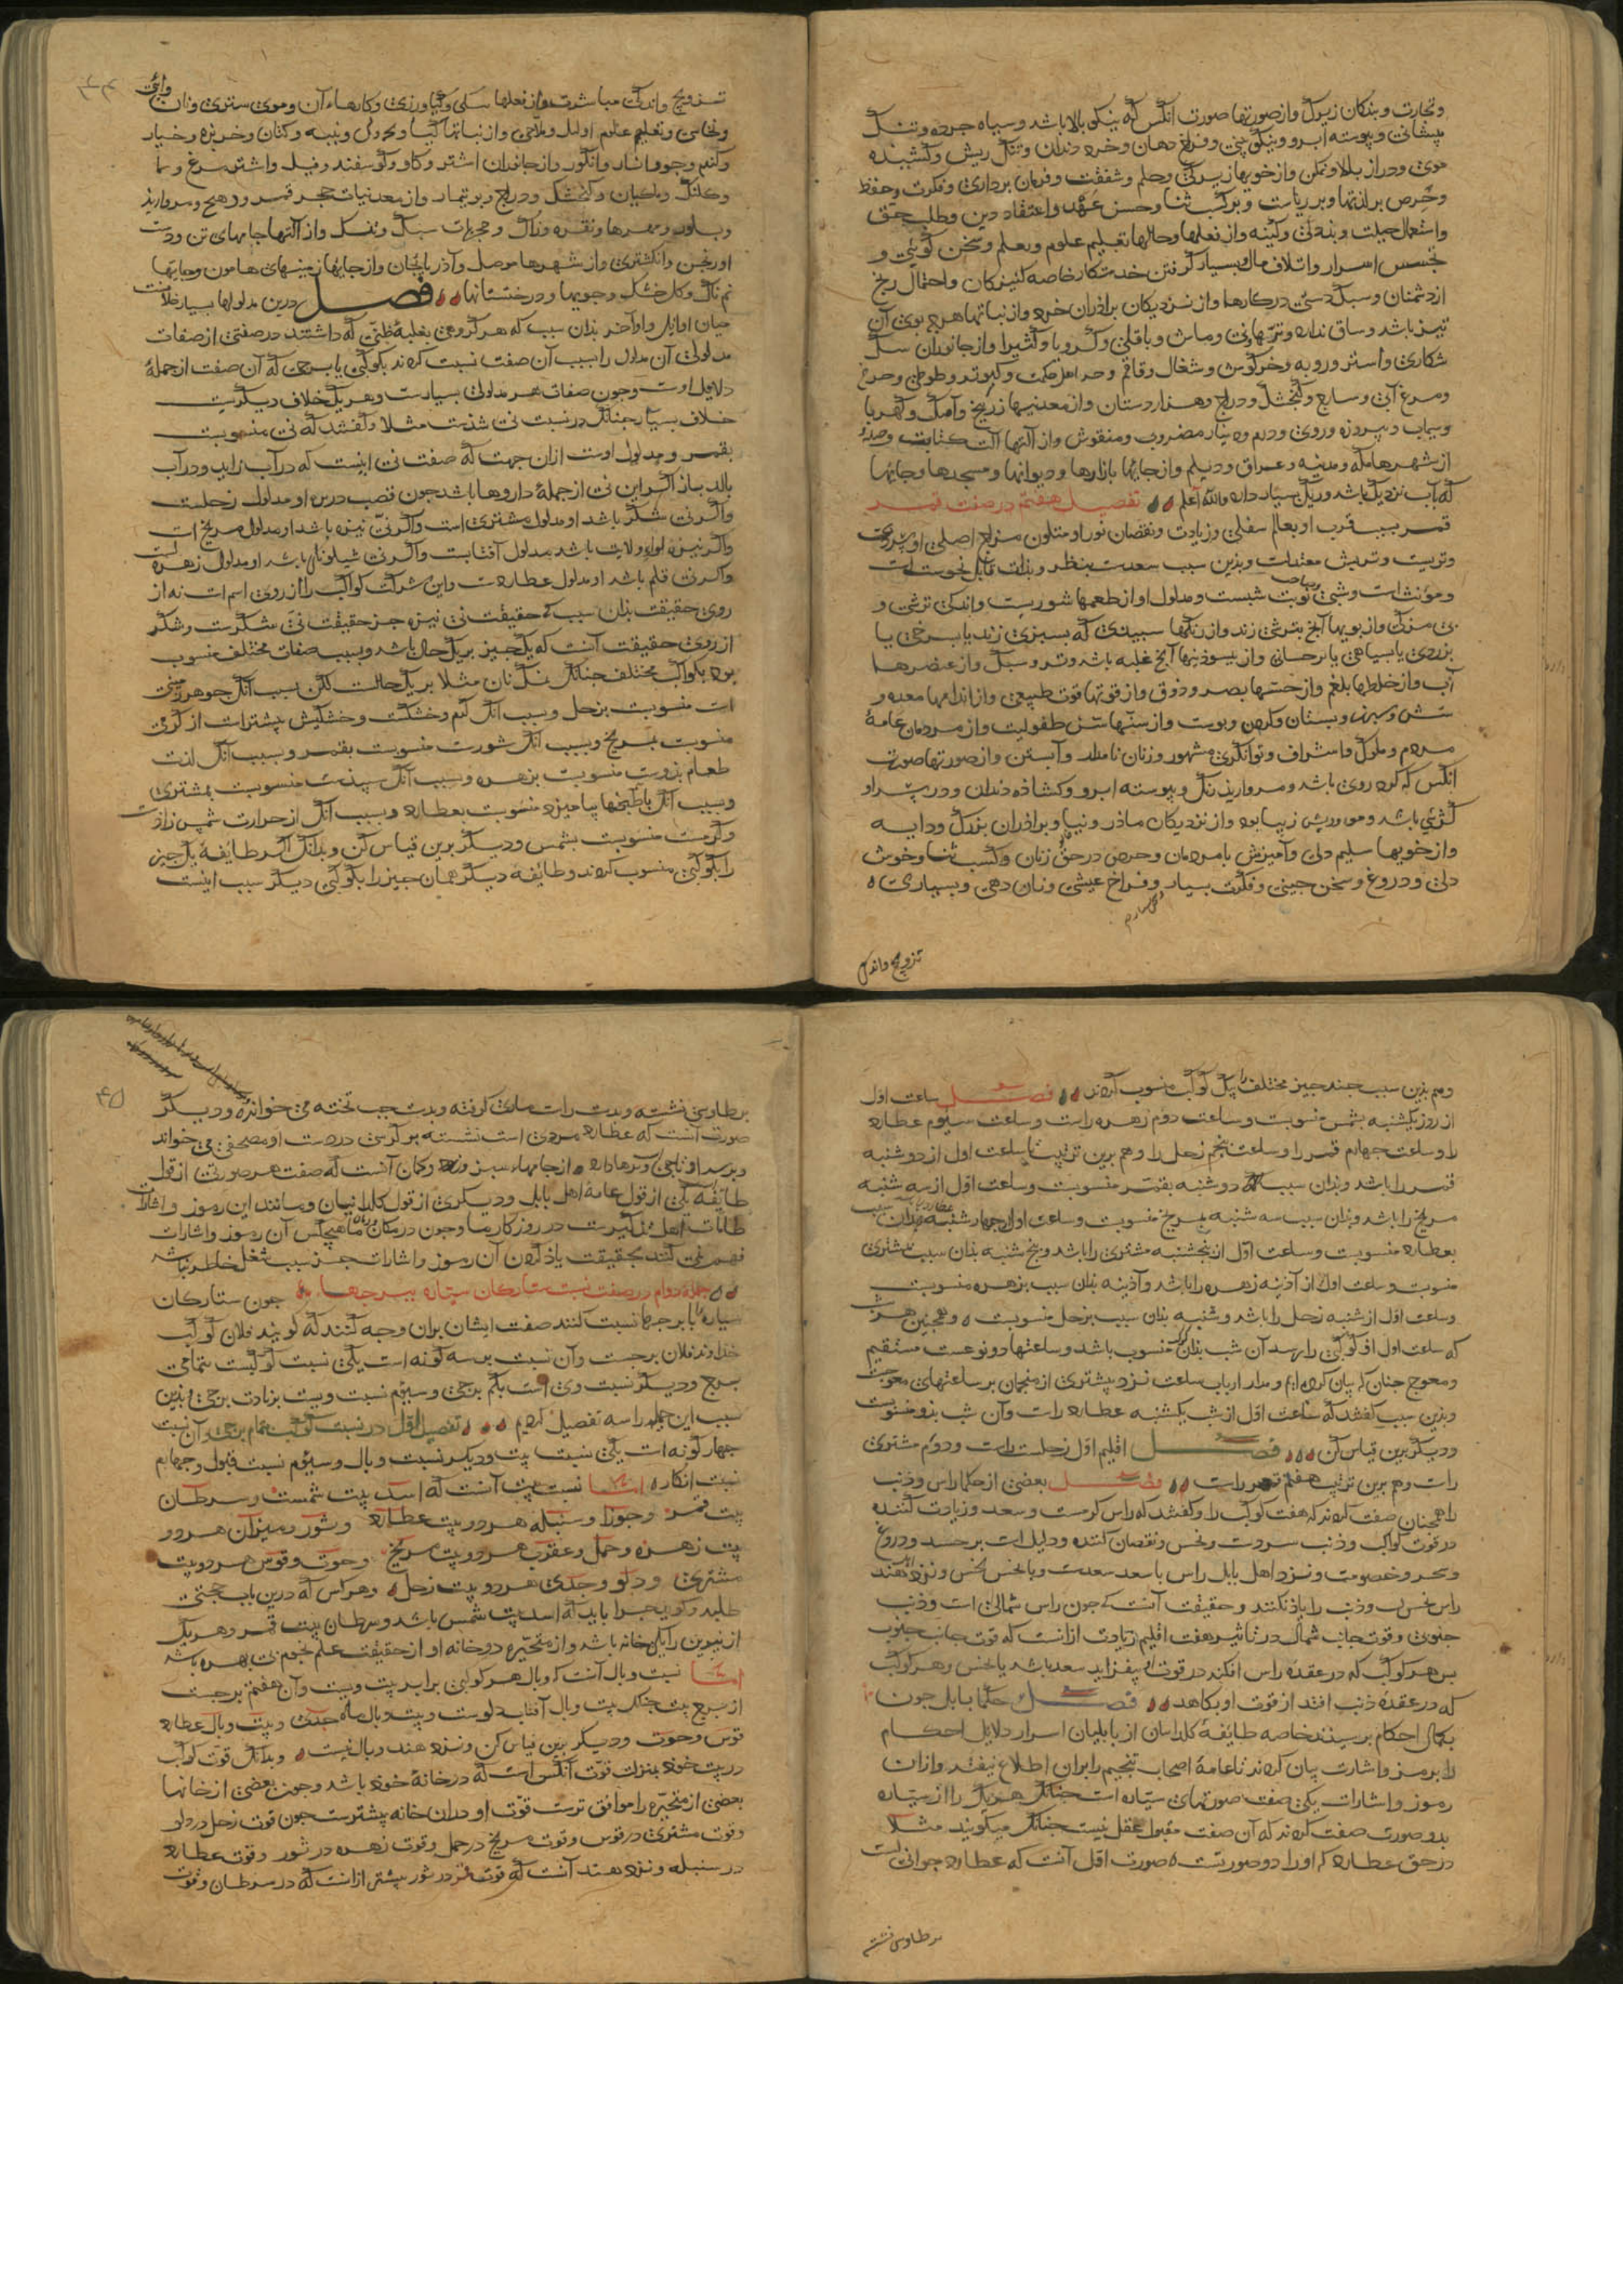 وتجارت وبندکان زیرک واز صورتها صورت آنکس که نیکو بالا باشد وسیاه جرده وتنک
پیشانی وپیوسته ابرو ونیکو بینی وفراخ دهان وخرد دندان وتنک ریش وکشیده
موی ودراز بالا وتمکن واز خویها زیرکی وحلم وشفقت وفرمان برداری وفکرت وحفظ
وحرص بر لذتها وبر ریاست وبر کسب ثنا وحسن عهد واعتقاد دین وطلب حق
واستعمال حیلت وبددلی وکینه واز فعلها وحالها تعلیم علوم وتعلم وسخن کوئی و
تجسس اسرار واتلاف مال وبسیار کرفتن خدمتکار خاصه کنیزکان واحتمال رنج
از دشمنان وسبک دستی در کارها واز نزدیکان برادران خرد واز نباتها هرچه بوی آن
تیز باشد وساق ندارد وماش وباقلی وکرویا وکشیرا واز جانوران سک
شکاری واستر وروبه وخرکوش وشغال وقاقم وکبوتر وطوطی
ومرغ آبی وسار وکنجشک ودراج وهزاردستان واز معدنیها زرنیخ وآهک وکهربا
وسیماب وپیروزه وروی ودرم ودینار مضروب ومنقوش واز آلتها آلت کتابت
از شهرها مکه ومدینه وعراق ودیلم واز جایها بازارها ودیوانها ومسجدها وجایها
که آب نزدیک باشد وریک بسیار دارد والله اعلم تفصیل هفتم در صفت قمر
قمر بسبب قرب او بعالم سفلی وزیادت ونقصان نور او متلون مزاج اصلی او
وتربیت معتدلست وبدین سبب سعدست بنظر وبذات مایل نحوست است
ومؤنث است وشبی نوبت شبست ومدلول او از طعمها شوریست واندکی ترشی و
بی مزکی واز بویها آنچ بترشی زند واز رنکها سپیدی که بسبزی زند یا بسرخی یا
بزردی یا بسیاهی واز بسودنیها آنچ غلبه باشد وتر وسبک واز عنصرها
آب واز خلطها بلغم واز حسها بصر وذوق واز قوتها قوت طبیعی واز اندامها معده و
شش وسینه وپستان وکردن وپوست واز سنها سن طفولیت واز مردمان عامه
مردم وملوک واشراف وتوانکری مشهور وزنان نامدار وآبستن واز صورتها صورت
آنکس که کرد روی باشد ومروارید رنک وپیوسته ابرو وکشاده دندان ودر سر او
کژی باشد وموی وریش زیبا بود واز نزدیکان ماذر ودنیا وبرادران بزرک ودایه
واز خویها سلیم دلی وآمیزش با مردمان وحرص در حق زنان وکسب ثنا وخوش
دلی ودروغ وسخن چینی وفکرت بسیار وفراخ عیشی ونان دهی وبسیاری
تزویج واندکی
تزویج واندکی مباشرت واز فعلها سبکی وکشاورزی وکارهاء آن وموی ستردن
ونخاسی وتعلیم علوم اوایل وملاحی واز نباتها کیا وپنبه وکتان وخربزه وخیار
وکندم وجو وانار وانکور واز جانوران اشتر وکاو وکوسفند وفیل واشتر مرغ
وکلنک وماکیان وکنجشک ودراج وبوتیمار واز معدنیات حجر قمر ودهنج ومروارید
وبلور ومهرها ونقره وزاک واز آلتها جامهای تن ودست
اورنجن وانکشتری واز شهرها موصل وآذربایجان واز جایها زمینهای هامون وجایها
نم ناک وکل خشک وجویها ودرختستانها فصل درین مدلولها بسیار خلافست
میان اوایل واواخر بدان سبب که هر کروهی بغلبه ظنی که داشتند در صفتی از صفات
مدلولی آن مدلول را بسبب آن صفت نسبت کردند بکوکبی یا برجی که آن صفت از جمله
دلایل اوست وجون صفات هر مدلولی بسیارست وهر یک خلاف دیکریست
خلاف بسیار جنانک در نسبت نی شذست مثلا وکفتند که نی منسوبست
بقمر ومدلول اوست ازان جهت که صفت نی اینست که در آب زاید ودر آب
بالد پس اکر این نی از جمله داروها باشد جون قصب ذریره او مدلول زحلست
واکر نی شکر باشد او مدلول مشتری است واکر نی نیزه باشد او مدلول مریخ است
واکر نیزه لواء ولایت باشد مدلول آفتابست واکر نی باشد او مدلول زهره است
واکر نی قلم باشد او مدلول عطاردست واین شرکت کواکب را از روی اسم است نه از
روی حقیقت بدان سبب که حقیقت نی نیزه جز حقیقت نی شکرست وشکر
از روی حقیقت آنست که یک چیز بر یک حال باشد وبسبب صفات مختلف منسوب
بود بکواکب مختلف جنانک نمک نان مثلا بر یک حالت لکن بسبب آنک جوهر زمینی
است منسوبست بزحل وبسبب آنک کرم وخشکست وخشکیش بیشترست از کرمی
منسوبست بمریخ وبسبب آنک شورست منسوبست بقمر وبسبب آنک لذت
طعام بذوست منسوبست بزهره وبسبب آنک سپیدست منسوبست بمشتری
وبسبب آنک با طبخها بیامیزد منسوبست بعطارد وبسبب آنک از حرارت شمس زاذست
وکرمست منسوبست بشمس ودیکر برین قیاس کن وبدانک اکر طایفه یک چیز
را بکوکبی منسوب کردند وطایفه دیکر همان چیز را بکوکبی دیکر سبب اینست
وهم بذین سبب جند جیز مختلف را بیک کوکب منسوب کردند فصل ساعت اول
از روز یکشنبه بشمس منسوبست وساعت دوم زهره راست وساعت سیوم عطارد
را وساعت جهارم قمر را وساعت پنجم زحل را وهم برین ترتیب تا ساعت اول از دوشنبه
قمر را باشد وبدان سبب دوشنبه بقمر منسوبست وساعت اول از سه شنبه
مریخ را باشد وبدان سبب سه شنبه بمریخ منسوبست وساعت اول از جهارشنبه عطارد را باشد بدان سبب
بعطارد منسوبست وساعت اول از پنجشنبه مشتری را باشد وپنج شنبه بذان سبب بمشتری
منسوبست وساعت اول از آذینه زهره را باشد وآذینه بذان سبب بزهره منسوبست
وساعت اول از شنبه زحل را باشد وشنبه بذان سبب بزحل منسوبست وهمجنین هر شب
که ساعت اول او کوکبی را رسد آن شب بذان کوکب منسوب باشد وساعتها دو نوعست مستقیم
ومعوج جنان که بیان کرده ایم ومدار ارباب ساعت نزد بیشتری از منجمان بر ساعتهای معوجست
وبذین سبب کفتند که ساعت اول از شب یکشنبه عطارد راست وآن شب بذو منسوبست
ودیکر برین قیاس کن فصل اقلیم اول زحلست ودوم مشتری
راست وهم برین ترتیب هفتم قمر راست فصل بعضی از حکما راس وذنب
را همجنان صفت کردند که هفت کوکب را وکفتند که راس کرمست وسعد وزیادت کننده
در قوت کواکب وذنب سردست ونحس ونقصان کننده ودلیل است بر حسد ودروغ
وسحر وخصومت ونزد اهل بابل راس با سعد سعدست وبا نحس نحس ونزد هند
راس نحس است وذنب را یاذ نکنند وحقیقت آنست که جون راس شمالی است وذنب
جنوبی وقوت جانب شمال در تاثیر هفت اقلیم زیادت ازانست که قوت جانب جنوب
پس هر کوکب که در عقده راس افتد در قوت او بیفزاید سعد باشد یا نحس وهر کوکب
که در عقده ذنب افتد از قوت او بکاهد فصل حکماء بابل جون
بکمال احکام برسیدند خاصه طایفه کلدانیان از بابلیان اسرار دلایل احکام
را برمز واشارت بیان کردند تا عامه اصحاب تنجیم را بران اطلاع نیفتد وازان
رموز واشارات یکی صفت صورتهای سیاره است جنانک هر یک را از سیاره
بدو صورت صفت کردند که آن صفت مقبول عقل نیست جنانک میکویند مثلا
در حق عطارد که او را دو صورتست صورت اول آنست که عطارد جوانیست
بر طاوسی نشسته
بر طاوسی نشسته وبدست راست ماری کرفته وبدست جب تخته می خواند ودیکر
صورت آنست که عطارد مردی است نشسته بر کرسی در دست او مصحفی می خواند
وبر سر او تاجی از جامهاء سبز وزرد وکمان آنست که صفت هر صورتی از قول
طایفه یکی از قول عامه اهل بابل ودیکری از قول کلدانیان ومانند این رموز واشارات
در روزکار ما وجون در مکان ما هیچکس آن رموز واشارات
فهم نمی کنند بحقیقت یاذ کردن آن رموز واشارات جز سبب شغل خاطر نباشد
جمله دوام در صفت نسبت ستارکان سیاره ببرجها جون ستارکان
سیاره را با برجها نسبت کنند صفت ایشان بران وجه کنند که کویند فلان کوکب
خداوند فلان برجست وآن نسبت بر سه کونه است یکی نسبت کوکبست بتمامی
برج ودیکر نسبت وی است بکم برجی وسیوم نسبت ویست بزیادت برجی وبذین
سبب این جمله را سه تفصیل کردیم تفصیل اول در نسبت کوکب بتمام برجی وآن نسبت
جهار کونه است یکی نسبت بیت ودیکر نسبت وبال وسیوم نسبت قبول وجهارم
نسبت انکار اما نسبت بیت آنست که اسد بیت شمست وسرطان
بیت قمر وجوزا وسنبله هر دو بیت عطارد وثور ومیزان هر دو
بیت زهره وحمل وعقرب هر دو بیت مریخ وحوت وقوس هر دو بیت
مشتری ودلو وجدی هر دو بیت زحل وهر کس که درین باب حجتی
طلبد وکوید جرا باید که اسد بیت شمس باشد وسرطان بیت قمر وهر یک
از نیرین را یک خانه باشد واز متحیره دو خانه او از حقیقت علم نجوم بی بهره باشد
اما نسبت وبال آنست که وبال هر کوکبی برابر بیت ویست وآن هفتم برجست
از برج بیت جنانک بیت وبال آفتاب دلوست وبیت وبال ماه جدی وبیت وبال عطارد
قوس وحوت ودیکر برین قیاس کن ونزد هند وبال نیست وبدانک قوت کوکب
در بیت خوذ بمنزلت قوت آنکس است که در خانه خوذ باشد وجون بعضی از خانها
بعضی از متحیره را موافق ترست قوت او دران خانه بیشترست جون قوت زحل در دلو
وقوت مشتری در قوس وقوت مریخ در حمل وقوت زهره در ثور وقوت عطارد
در سنبله ونزد هند آنست که قوت قمر در ثور بیشتر ازانست که در سرطان وقوت